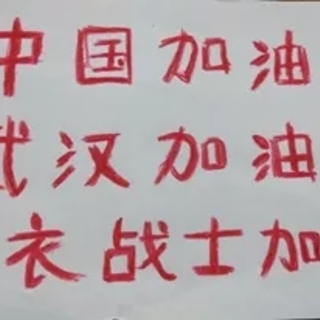 中国加油
武汉加油
衣战士加